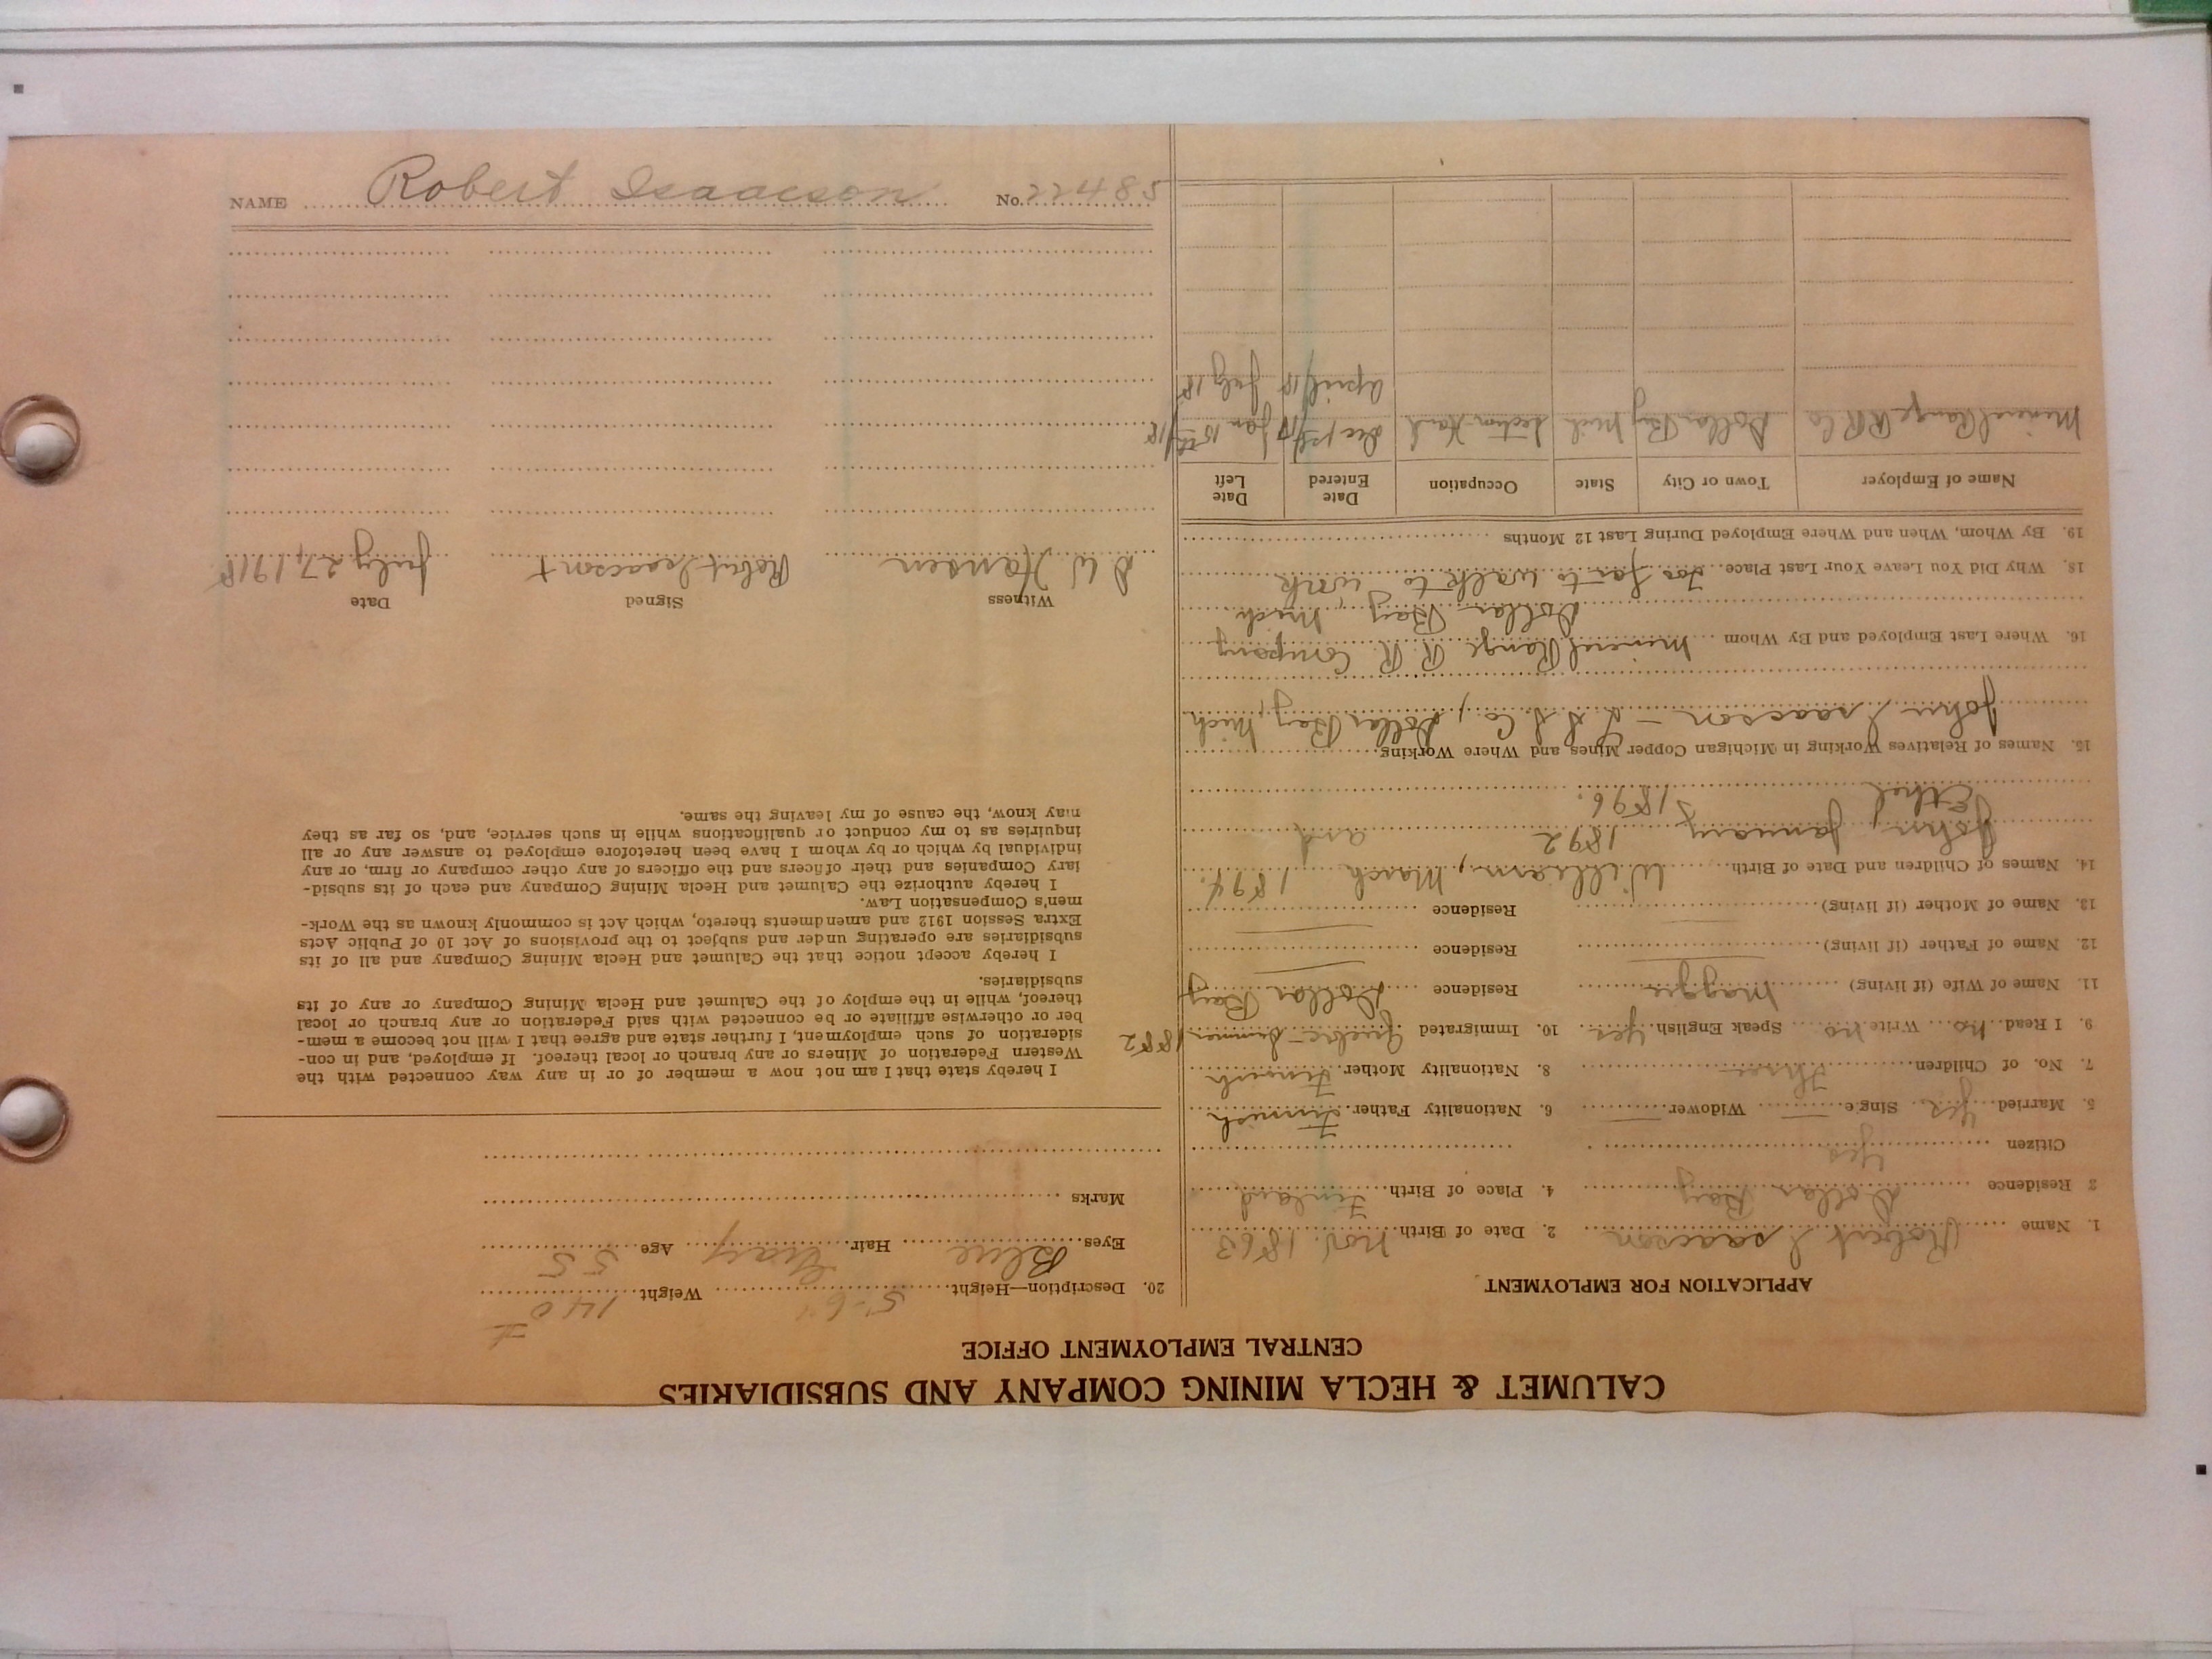 CALUMET & HECLA MINING COMPANY AND SUBSIDIARIES
CENTRAL EMPLOYMENT OFFICE
APPLICATION FOR EMPLOYMENT
1. Name Robert Isaacson 2. Date of Birth Nov. 1863
3 Residence Dollar Bay 4. Place of Birth Finland
Citizen Yes
5. Married Yes Single — Widower — 6. Nationality Father Finnish
7. No. of Children Three 8. Nationality Mother Finnish
9. I Read no Write no Speak English Yes 10. Immigrated Quebec – Summer 1882
11. Name of Wife (if living) Maggie Residence Dollar Bay
12. Name of Father (if living) — Residence —
13. Name of Mother (if living) — Residence
14. Names of Children and Date of Birth William, March 1894.
John, January 1892 and
Ethel 1896.
15. Names of Relatives Working in Michigan Copper Mines and Where Working
John Isaacson – L. S. S. Co., Dollar Bay, Mich
16. Where Last Employed and By Whom Mineral Range R. R. Company
Dollar Bay, Mich
18. Why Did You Leave Your Last Place Too far to walk to work
19. By Whom, When and Where Employed During Last 12 Months
Name of Employer Town or City State Occupation Date Entered Date Left
Mineral Range RR Co Dollar Bay Mich Section Hand Dec 1st/17 Jan 15th/18
April/18 July 18
20. Description—Height 5-6" Weight 140 #
Eyes Blue Hair Gray Age 55
Marks
I hereby state that I am not now a member of or in any way connected with the
Western Federation of Miners or any branch or local thereof. If employed, and in con-
sideration of such employment, I further state and agree that I will not become a mem-
ber or otherwise affiliate or be connected with said Federation or any branch or local
thereof, while in the employ of the Calumet and Hecla Mining Company or any of its
subsidiaries.
I hereby accept notice that the Calumet and Hecla Mining Company and all of its
subsidiaries are operating under and subject to the provisions of Act 10 of Public Acts
Extra Session 1912 and amendments thereto, which Act is commonly known as the Work-
men's Compensation Law.
I hereby authorize the Calumet and Hecla Mining Company and each of its subsid-
iary Companies and their officers and the officers of any other company or firm, or any
individual by which or by whom I have been heretofore employed to answer any or all
inquiries as to my conduct or qualifications while in such service, and, so far as they
may know, the cause of my leaving the same.
Witness Signed Date
D W Hansen Robert Isaacson + July 27, 1918
NAME Robert Isaacson No. 22485